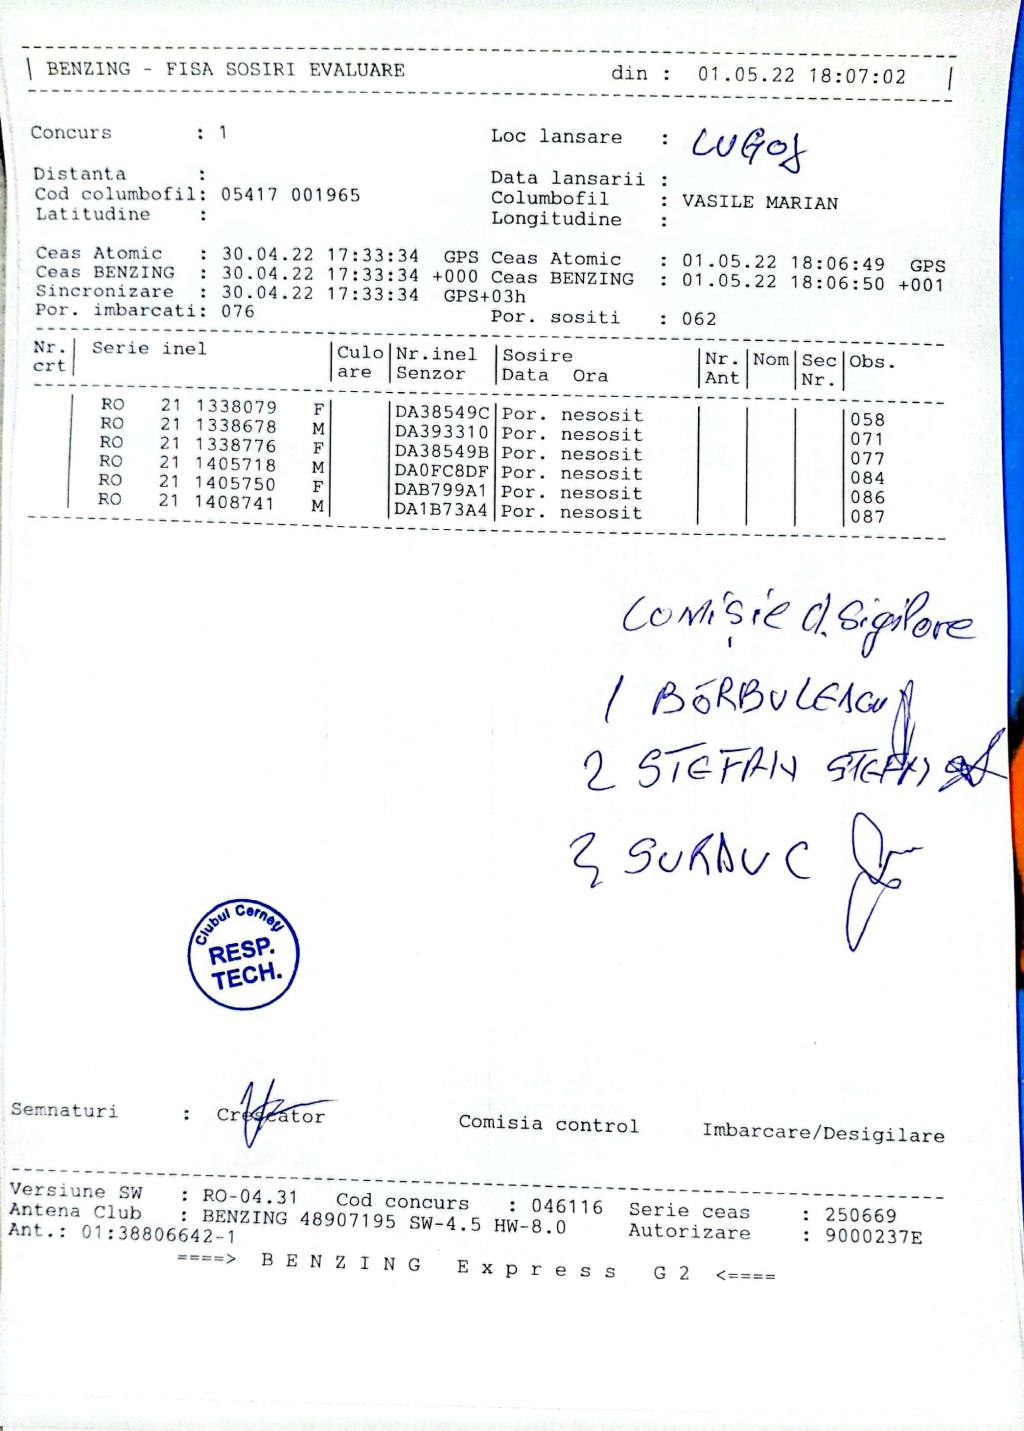 BENZING - FISA SOSIRI EVALUARE din : 01.05.22 18:07:02
Concurs : 1 Loc lansare : LUGOJ
Distanta : Data lansarii :
Cod columbofil: 05417 001965 Columbofil : VASILE MARIAN
Latitudine : Longitudine :
Ceas Atomic : 30.04.22 17:33:34 GPS Ceas Atomic : 01.05.22 18:06:49 GPS
Ceas BENZING : 30.04.22 17:33:34 +000 Ceas BENZING : 01.05.22 18:06:50 +001
Sincronizare : 30.04.22 17:33:34 GPS+03h
Por. imbarcati: 076 Por. sositi : 062
Nr. | Serie inel | Culo | Nr.inel | Sosire | Nr. | Nom | Sec | Obs.
crt | are | Senzor | Data Ora | Ant | Nr.
RO 21 1338079 F DA38549C Por. nesosit 058
RO 21 1338678 M DA393310 Por. nesosit 071
RO 21 1338776 F DA38549B Por. nesosit 077
RO 21 1405718 M DA0FC8DF Por. nesosit 084
RO 21 1405750 F DAB799A1 Por. nesosit 086
RO 21 1408741 M DA1B73A4 Por. nesosit 087
Comisie d. sigilare
1 BĂRBULESCU
2 STEFAN STEFAN
3 SURDUC
Clubul Cerneți
RESP.
TECH.
Semnaturi : Crescator Comisia control Imbarcare/Desigilare
Versiune SW : RO-04.31 Cod concurs : 046116 Serie ceas : 250669
Antena Club : BENZING 48907195 SW-4.5 HW-8.0 Autorizare : 9000237E
Ant.: 01:38806642-1
====> B E N Z I N G E x p r e s s G 2 <====